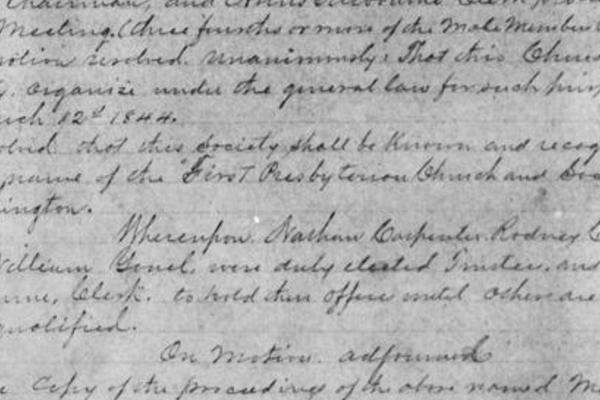 Chairman, and
Meeting. (three fourths or more of the Male Member
otion resolved. Unanimously: That this Chur
organise under the general law for such purp
ch 12d 1844.
olved that this Society shall be Known and recog
name of the First Presbyterian Church and Soc
ington.
Whereupon. Nathan Carpenter. Rodney C
William were duly elected Trustees, and
Clerk. to hold their offices until others are
qualified.
On motion. adjourned
Copy of the proceedings of the above named M